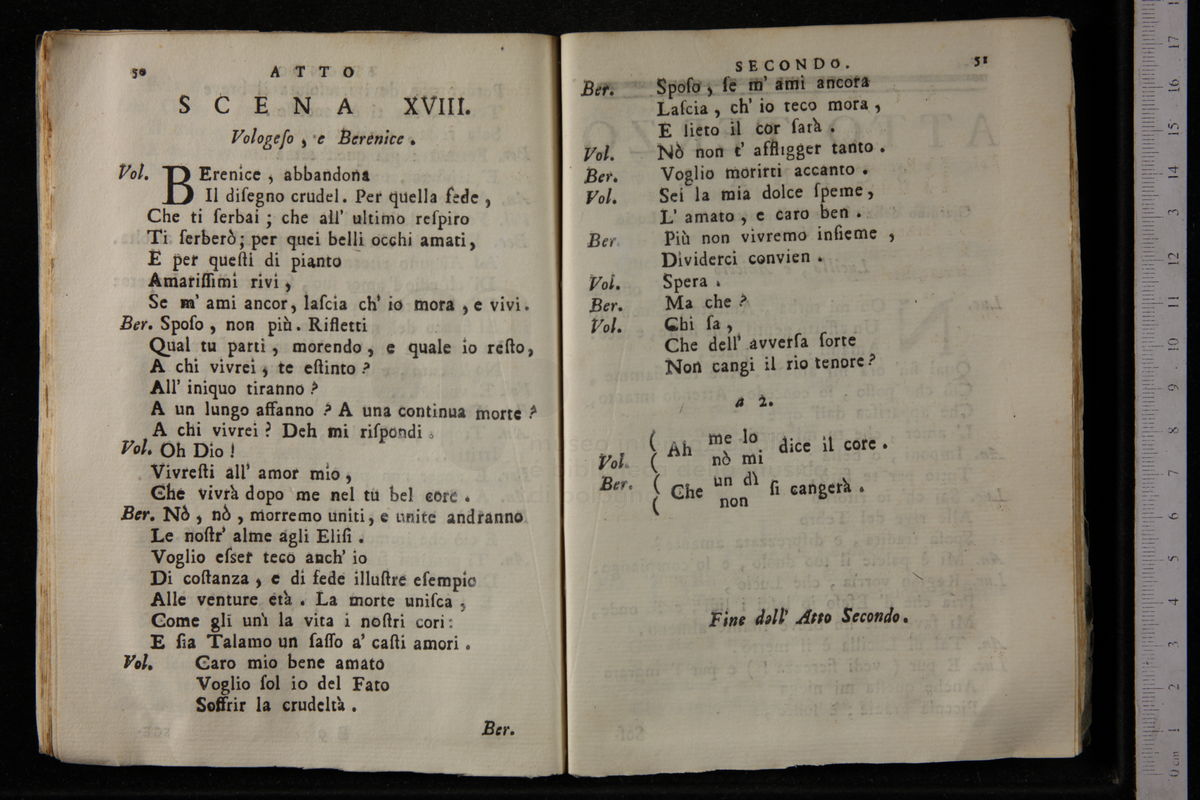 50 ATTO
SCENA XVIII.
Vologeſo, e Berenice.
Vol. BErenice, abbandona
Il diſegno crudel. Per quella fede,
Che ti ſerbai; che all' ultimo reſpiro
Ti ſerberò; per quei belli occhi amati,
E per queſti di pianto
Amariſſimi rivi,
Se m' ami ancor, laſcia ch' io mora, e vivi.
Ber. Spoſo, non più. Rifletti
Qual tu parti, morendo, e quale io reſto,
A chi vivrei, te eſtinto?
All' iniquo tiranno?
A un lungo affanno? A una continua morte?
A chi vivrei? Deh mi riſpondi.
Vol. Oh Dio!
Vivreſti all' amor mio,
Che vivrà dopo me nel tu bel core.
Ber. Nò, nò, morremo uniti, e unite andranno
Le noſtr' alme agli Eliſi.
Voglio eſser teco anch' io
Di coſtanza, e di fede illuſtre eſempio
Alle venture età. La morte uniſca,
Come gli unì la vita i noſtri cori:
E ſia Talamo un ſaſſo a' caſti amori.
Vol. Caro mio bene amato
Voglio ſol io del Fato
Soffrir la crudeltà.
Ber.
SECONDO. 51
Ber. Spoſo, ſe m' ami ancora
Laſcia, ch' io teco mora,
E lieto il cor ſarà.
Vol. Nò non t' affligger tanto.
Ber. Voglio morirti accanto.
Vol. Sei la mia dolce ſpeme,
L' amato, e caro ben.
Ber. Più non vivremo inſieme,
Dividerci convien.
Vol. Spera.
Ber. Ma che?
Vol. Chi ſa,
Che dell' avverſa ſorte
Non cangi il rio tenore?
a 2.
me lo
Vol. ( Ah dice il core.
nò mi
un dì
Ber. ( Che ſi cangerà.
non
Fine dell' Atto Secondo.